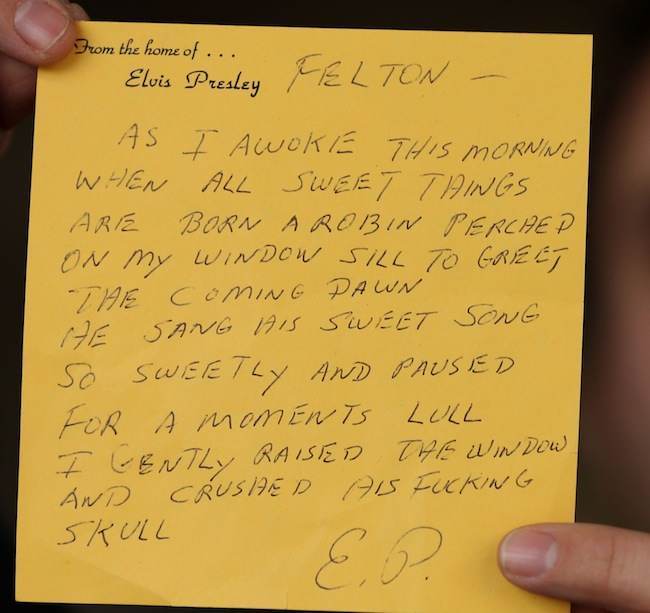 From the home of . . .
Elvis Presley
FELTON —
AS I AWOKE THIS MORNING
WHEN ALL SWEET THINGS
ARE BORN A ROBIN PERCHED
ON MY WINDOW SILL TO GREET
THE COMING DAWN
HE SANG HIS SWEET SONG
SO SWEETLY AND PAUSED
FOR A MOMENTS LULL
I GENTLY RAISED THE WINDOW
AND CRUSHED HIS FUCKING
SKULL
E.P.